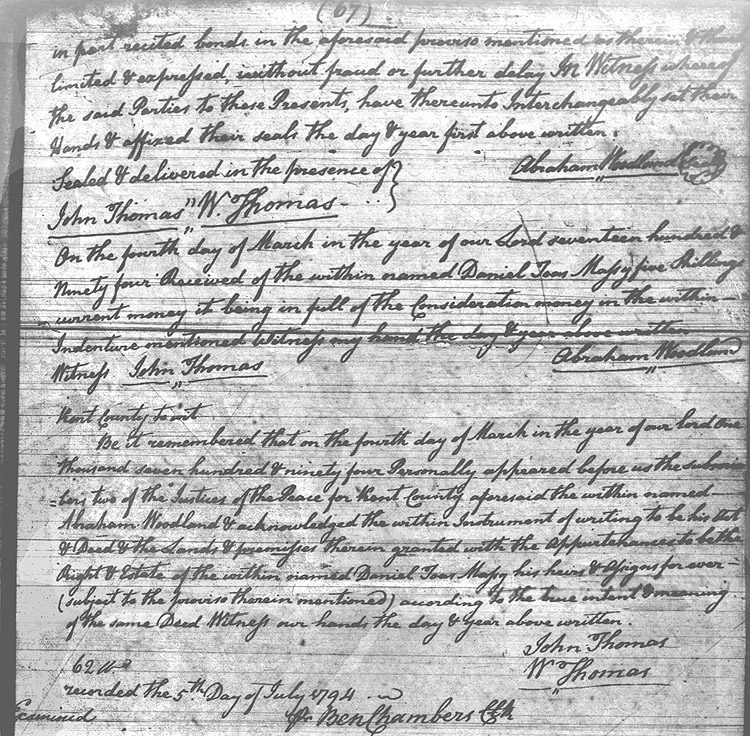 (67)
in part recited bonds in the aforesaid proviso mentioned as therein &
limited & expressed, without fraud or further delay In Witness whereof
the said Parties to these Presents, have thereunto Interchangeably set their
Hands & affixed their seals the day & year first above written.
Sealed & delivered in the presence of } Abraham Woodland Seal
John Thomas " W. Thomas
On the fourth day of March in the year of our Lord seventeen hundred &
Ninety four Received of the within named Daniel Toas Massy five Shillings
current money it being in full of the Consideration money in the within
Indenture mentioned Witness my hand the day & year above written
Witness John Thomas Abraham Woodland
Kent County to wit
Be it remembered that on the fourth day of March in the year of our lord One
thousand seven hundred & ninety four Personally appeared before us the subscri
=bers, two of the Justices of the Peace for Kent County aforesaid the within named
Abraham Woodland & acknowledged the within Instrument of writing to be his Act
& Deed & the Lands & premisses therein granted with the Appurtenances to be the
Right & Estate of the within named Daniel Toas Massy his heirs & Assigns for ever
(subject to the proviso therein mentioned) acording to the true intent & meaning
of the same Deed Witness our hands the day & year above written.
John Thomas
W Thomas
62
recorded the 5th Day of July 1794
Examined pr Ben Chambers Clk